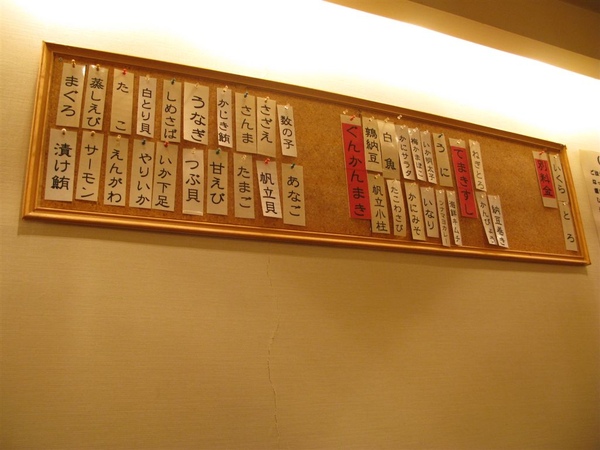 まぐろ
蒸しえび
たこ
白とり貝
しめさば
うなぎ
かじき鮪
さんま
さざえ
数の子
漬け鮪
サーモン
えんがわ
やりいか
いか下足
つぶ貝
甘えび
たまご
帆立貝
あなご
ぐんかんまき
鶏納豆
白魚
かにサラダ
うに
帆立小柱
たこわさび
かにみそ
いなり
てまきずし
ねぎとろ
かんぴょう
納豆巻き
別料金
いくら
とろ